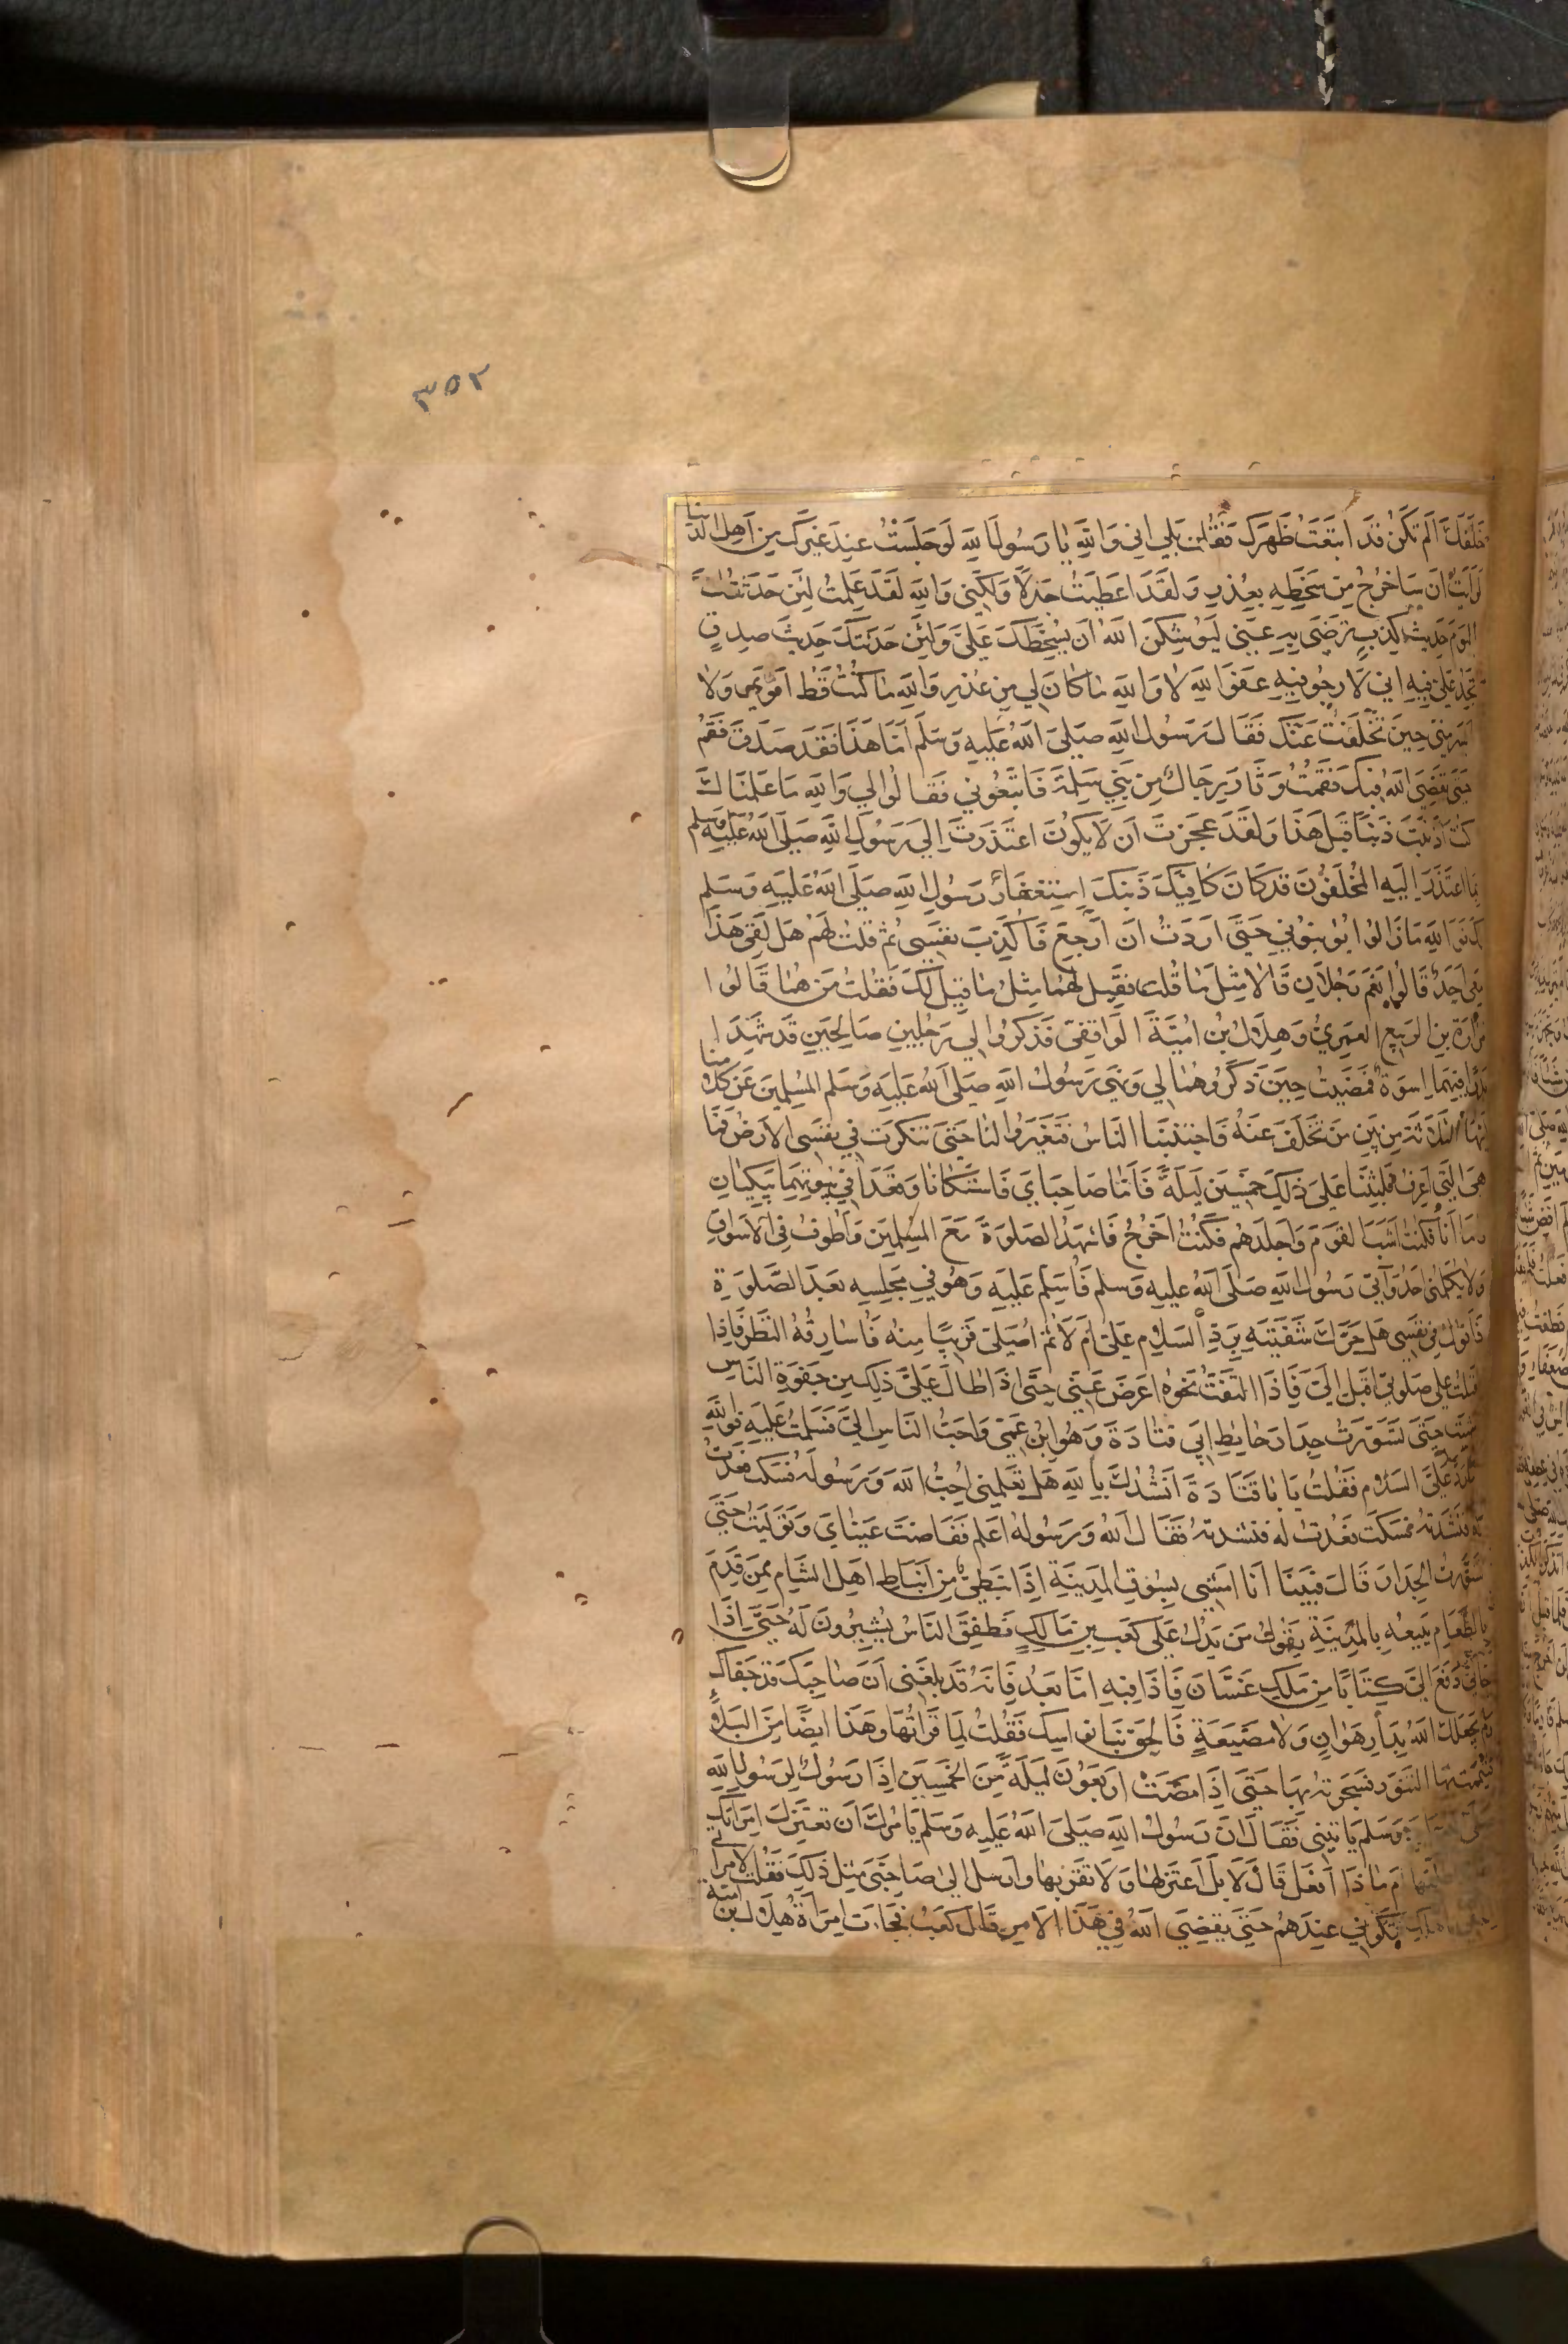 ٣٥٢
خلفك ألم تكن قد ابتعت ظهرك فقلت بلي اني والله يا رسول الله لو جلست عند غيرك من اهل الدنيا
لرايت ان ساخرج من سخطه بعذر ولقد اعطيت جدلا ولكني والله لقد علمت لئن حدثتك
اليوم حديث كذب ترضي به عني ليوشكن الله أن يسخطك علي ولئن حدثتك حديث صدق
تجد علي فيه اني لارجو فيه عفو الله لا والله ما كان لي من عذر والله ما كنت قط اقوي ولا
ايسر مني حين تخلفت عنك فقال رسول الله صلى الله عليه وسلم أما هذا فقد صدق فقم
حتى يقضي الله فيك فقمت وثار رجال من بني سلمة فاتبعوني فقالوا لي والله ما علمناك
كنت أذنبت ذنبا قبل هذا ولقد عجزت أن لا يكون اعتذرت إلي رسول الله صلى الله عليه وسلم
بما اعتذر إليه المخلفون قد كان كافيك ذنبك استغفار رسول الله صلى الله عليه وسلم
لك فوالله ما زالوا يؤنبوني حتى اردت ان أرجع فأكذب نفسي ثم قلت لهم هل لقي هذا
معي احد قالوا نعم رجلان قالا مثل ما قلت فقيل لهما مثل ما قيل لك فقلت من هما قالوا
مرارة بن الربيع العمري وهلال بن امية الواقفي فذكروا لي رجلين صالحين قد شهدا
بدرا فيهما اسوة فمضيت حين ذكروهما لي ونهي رسول الله صلى الله عليه وسلم المسلمين عن كلامنا
ايها الثلاثة من بين من تخلف عنه فاجتنبنا الناس فتغيروا لنا حتى تنكرت في نفسي الارض فما
هي التي اعرف فلبثنا على ذلك خمسين ليلة فأما صاحباي فاستكانا وقعدا في بيوتهما يبكيان
واما أنا فكنت اشب القوم واجلدهم فكنت اخرج فاشهد الصلوة مع المسلمين واطوف في الاسواق
ولا يكلمني احد وآتي رسول الله صلى الله عليه وسلم فأسلم عليه وهو في مجلسه بعد الصلوة
فاقول في نفسي هل حرك شفتيه برد السلام علي ام لا ثم اصلي قريبا منه فأسارقه النظر فاذا
اقبلت علي صلوتي اقبل الي فاذا التفت نحوه اعرض عني حتى اذا طال علي ذلك من جفوة الناس
مشيت حتى تسورت جدار حائط ابي قتادة وهو ابن عمي واحب الناس الي فسلمت عليه فوالله
ما رد علي السلام فقلت يا با قتادة انشدك بالله هل تعلمني احب الله ورسوله فسكت فعدت
له فنشدته فسكت فعدت له فنشدته فقال الله ورسوله اعلم ففاضت عيناي وتوليت حتى
تسورت الجدار قال فبينا أنا امشي بسوق المدينة اذا نبطي من انباط اهل الشام ممن قدم
بالطعام يبيعه بالمدينة يقول من يدل على كعب بن مالك فطفق الناس يشيرون له حتى اذا
جاءني دفع الي كتابا من ملك غسان فاذا فيه اما بعد فانه قد بلغني ان صاحبك قد جفاك
ولم يجعلك الله بدار هوان ولا مضيعة فالحق بنا نواسيك فقلت لما قرأتها وهذا ايضا من البلاء
فتيممت بها التنور فسجرته بها حتى اذا مضت اربعون ليلة من الخمسين اذا رسول لرسول الله
صلى الله عليه وسلم ياتيني فقال ان رسول الله صلى الله عليه وسلم يامرك ان تعتزل امراتك
ام ماذا أفعل قال لا بل اعتزلها ولا تقربها وارسل الي صاحبي مثل ذلك فقلت لامراتي
فتكوني عندهم حتى يقضي الله في هذا الامر قال كعب فجاءت امراة هلال بن امية